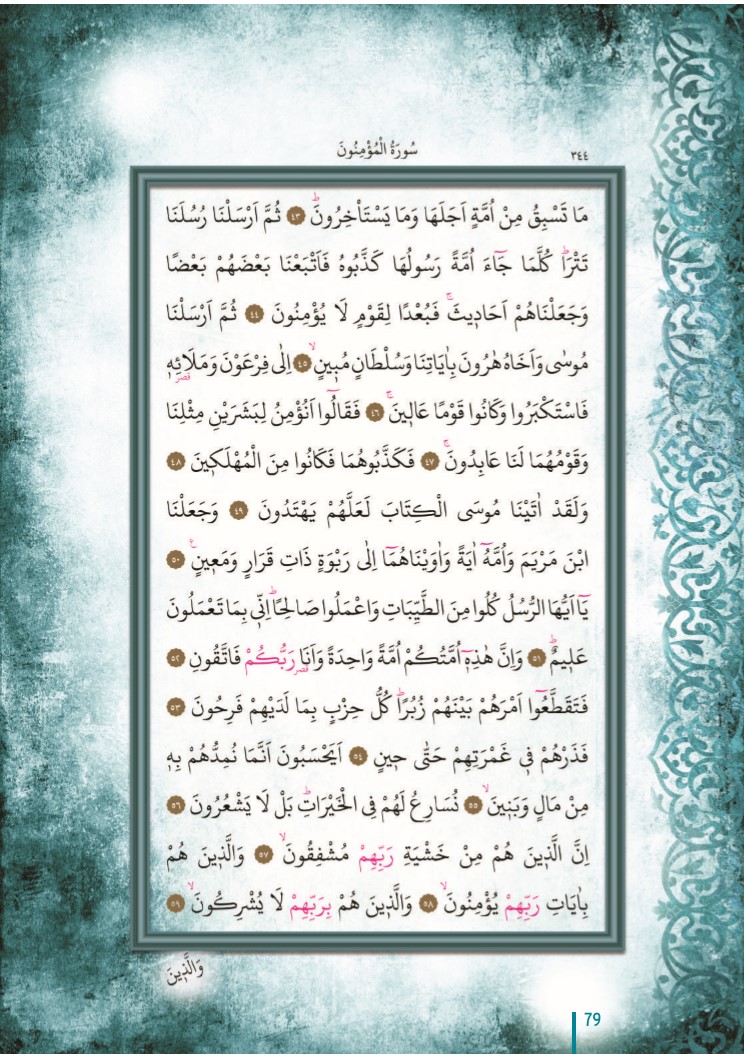 ٣٤٤
سُورَةُ الْمُؤْمِنُونَ
مَا تَسْبِقُ مِنْ اُمَّةٍ اَجَلَهَا وَمَا يَسْتَأْخِرُونَۜ ٤٣ ثُمَّ اَرْسَلْنَا رُسُلَنَا
تَتْرٰاۜ كُلَّمَا جَٓاءَ اُمَّةً رَسُولُهَا كَذَّبُوهُ فَاَتْبَعْنَا بَعْضَهُمْ بَعْضًا
وَجَعَلْنَاهُمْ اَحَاد۪يثَۚ فَبُعْدًا لِقَوْمٍ لَا يُؤْمِنُونَ ٤٤ ثُمَّ اَرْسَلْنَا
مُوسٰى وَاَخَاهُ هٰرُونَ بِاٰيَاتِنَا وَسُلْطَانٍ مُب۪ينٍۙ ٤٥ اِلٰى فِرْعَوْنَ وَمَلَا۬ئِه۪
قصر
فَاسْتَكْبَرُوا وَكَانُوا قَوْمًا عَال۪ينَۚ ٤٦ فَقَالُٓوا اَنُؤْمِنُ لِبَشَرَيْنِ مِثْلِنَا
وَقَوْمُهُمَا لَنَا عَابِدُونَۚ ٤٧ فَكَذَّبُوهُمَا فَكَانُوا مِنَ الْمُهْلَك۪ينَ ٤٨
وَلَقَدْ اٰتَيْنَا مُوسَى الْكِتَابَ لَعَلَّهُمْ يَهْتَدُونَ ٤٩ وَجَعَلْنَا
ابْنَ مَرْيَمَ وَاُمَّهُٓ اٰيَةً وَاٰوَيْنَاهُمَٓا اِلٰى رَبْوَةٍ ذَاتِ قَرَارٍ وَمَع۪ينٍ۟ ٥٠
يَٓا اَيُّهَا الرُّسُلُ كُلُوا مِنَ الطَّيِّبَاتِ وَاعْمَلُوا صَالِحًاۜ اِنّ۪ي بِمَا تَعْمَلُونَ
عَل۪يمٌۜ ٥١ وَاِنَّ هٰذِه۪ٓ اُمَّتُكُمْ اُمَّةً وَاحِدَةً وَاَنَا۬ رَبُّكُمْ فَاتَّقُونِ ٥٢
قصر
فَتَقَطَّعُٓوا اَمْرَهُمْ بَيْنَهُمْ زُبُرًاۜ كُلُّ حِزْبٍ بِمَا لَدَيْهِمْ فَرِحُونَ ٥٣
فَذَرْهُمْ ف۪ي غَمْرَتِهِمْ حَتّٰى ح۪ينٍ ٥٤ اَيَحْسَبُونَ اَنَّمَا نُمِدُّهُمْ بِه۪
مِنْ مَالٍ وَبَن۪ينَۙ ٥٥ نُسَارِعُ لَهُمْ فِي الْخَيْرَاتِۜ بَلْ لَا يَشْعُرُونَ ٥٦
اِنَّ الَّذ۪ينَ هُمْ مِنْ خَشْيَةِ رَبِّهِمْ مُشْفِقُونَۙ ٥٧ وَالَّذ۪ينَ هُمْ
بِاٰيَاتِ رَبِّهِمْ يُؤْمِنُونَۙ ٥٨ وَالَّذ۪ينَ هُمْ بِرَبِّهِمْ لَا يُشْرِكُونَۙ ٥٩
وَالَّذ۪ينَ
79